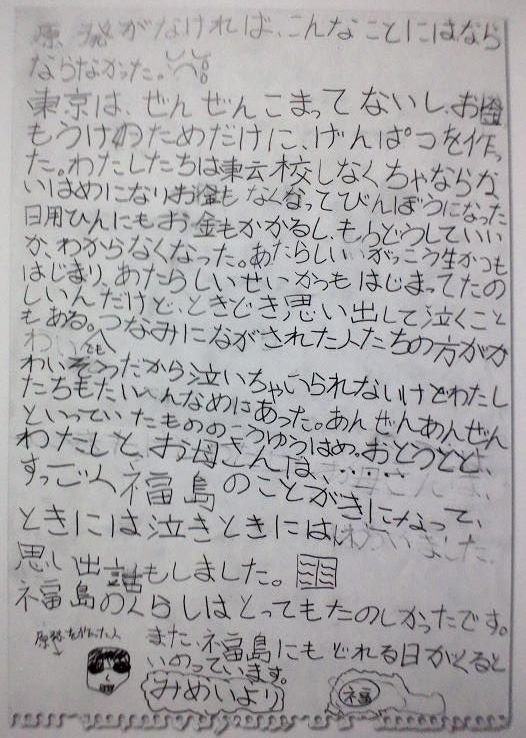 原発がなければ、こんなことにはなら
ならなかった。
東京は、ぜんぜんこまってないし、お金
もうけのためだけに、げんぱつを作っ
た。わたしたちは転校しなくちゃならな
いはめになりお金もなくなってびんぼうになった
日用ひんにもお金もかかるし、もうどうしていい
か、わからなくなった。あたらしいがっこう生かつも
はじまり、あたらしいせいかつもはじまってたの
しいんだけど、ときどき思い出して泣くこと
もある。つなみにながされた人たちの方がか
わいそうだから泣いちゃいられないけどわたし
たちもたいへんなめにあった。あんぜんあんぜん
といっていたもののこうゆうはめ。おとうとと、
わたしと、お母さんは、……
すっごく福島のことがきになって、
ときには泣きときにはわらいました。
思い出話もしました。
福島のくらしはとってもたのしかったです。
また、福島にもどれる日がくると
いのっています。
みめいより
福